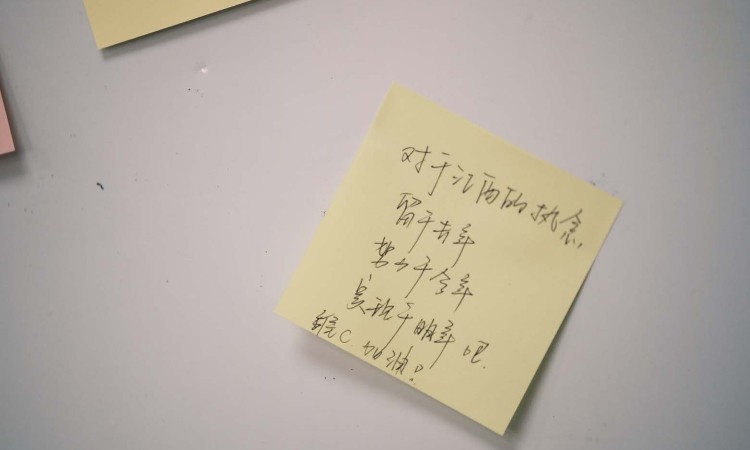 对于江西的执念
留于去年
努力于今年
实现于明年吧.
维C 加油。